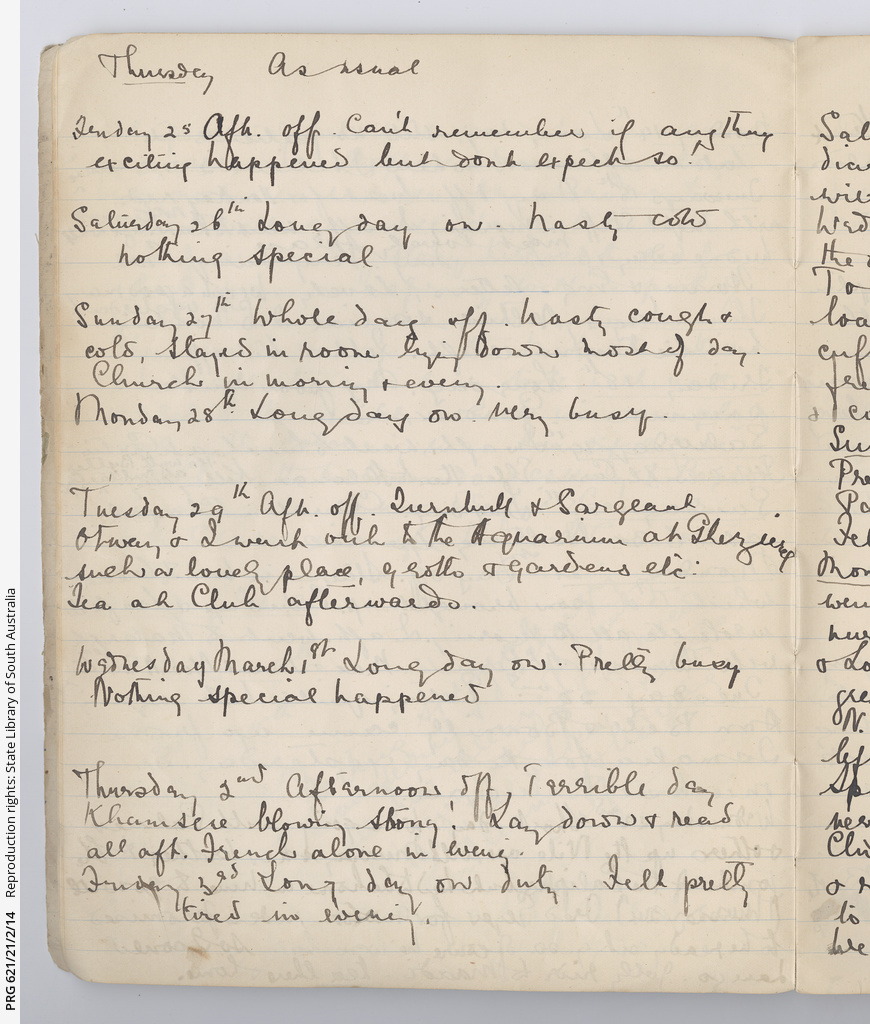 Thursday As usual
Friday 25 Aft. off. Can't remember if anything
exciting happened but dont expect so!
Saturday 26th Long day on. Nasty cold
nothing special
Sunday 27th Whole day off. Nasty cough &
cold, stayed in room lying down most of day.
Church in morning & evening.
Monday 28th Long day on. Very busy.
Tuesday 29th Aft. off. Turnbull & Sargeant
Otway & I went out to the Aquarium at Ghezireh
such a lovely place, grotto & gardens etc:
Tea at Club afterwards.
Wednesday March 1st Long day on. Pretty busy
Nothing special happened
Thursday 2nd Afternoon off, Terrible day
Khamseen blowing strong! Lay down & read
all aft. French alone in eveng.
Friday 3rd Long day on duty. Felt pretty
tired in evening.
the
To
PRG 621/21/2/14 Reproduction rights: State Library of South Australia